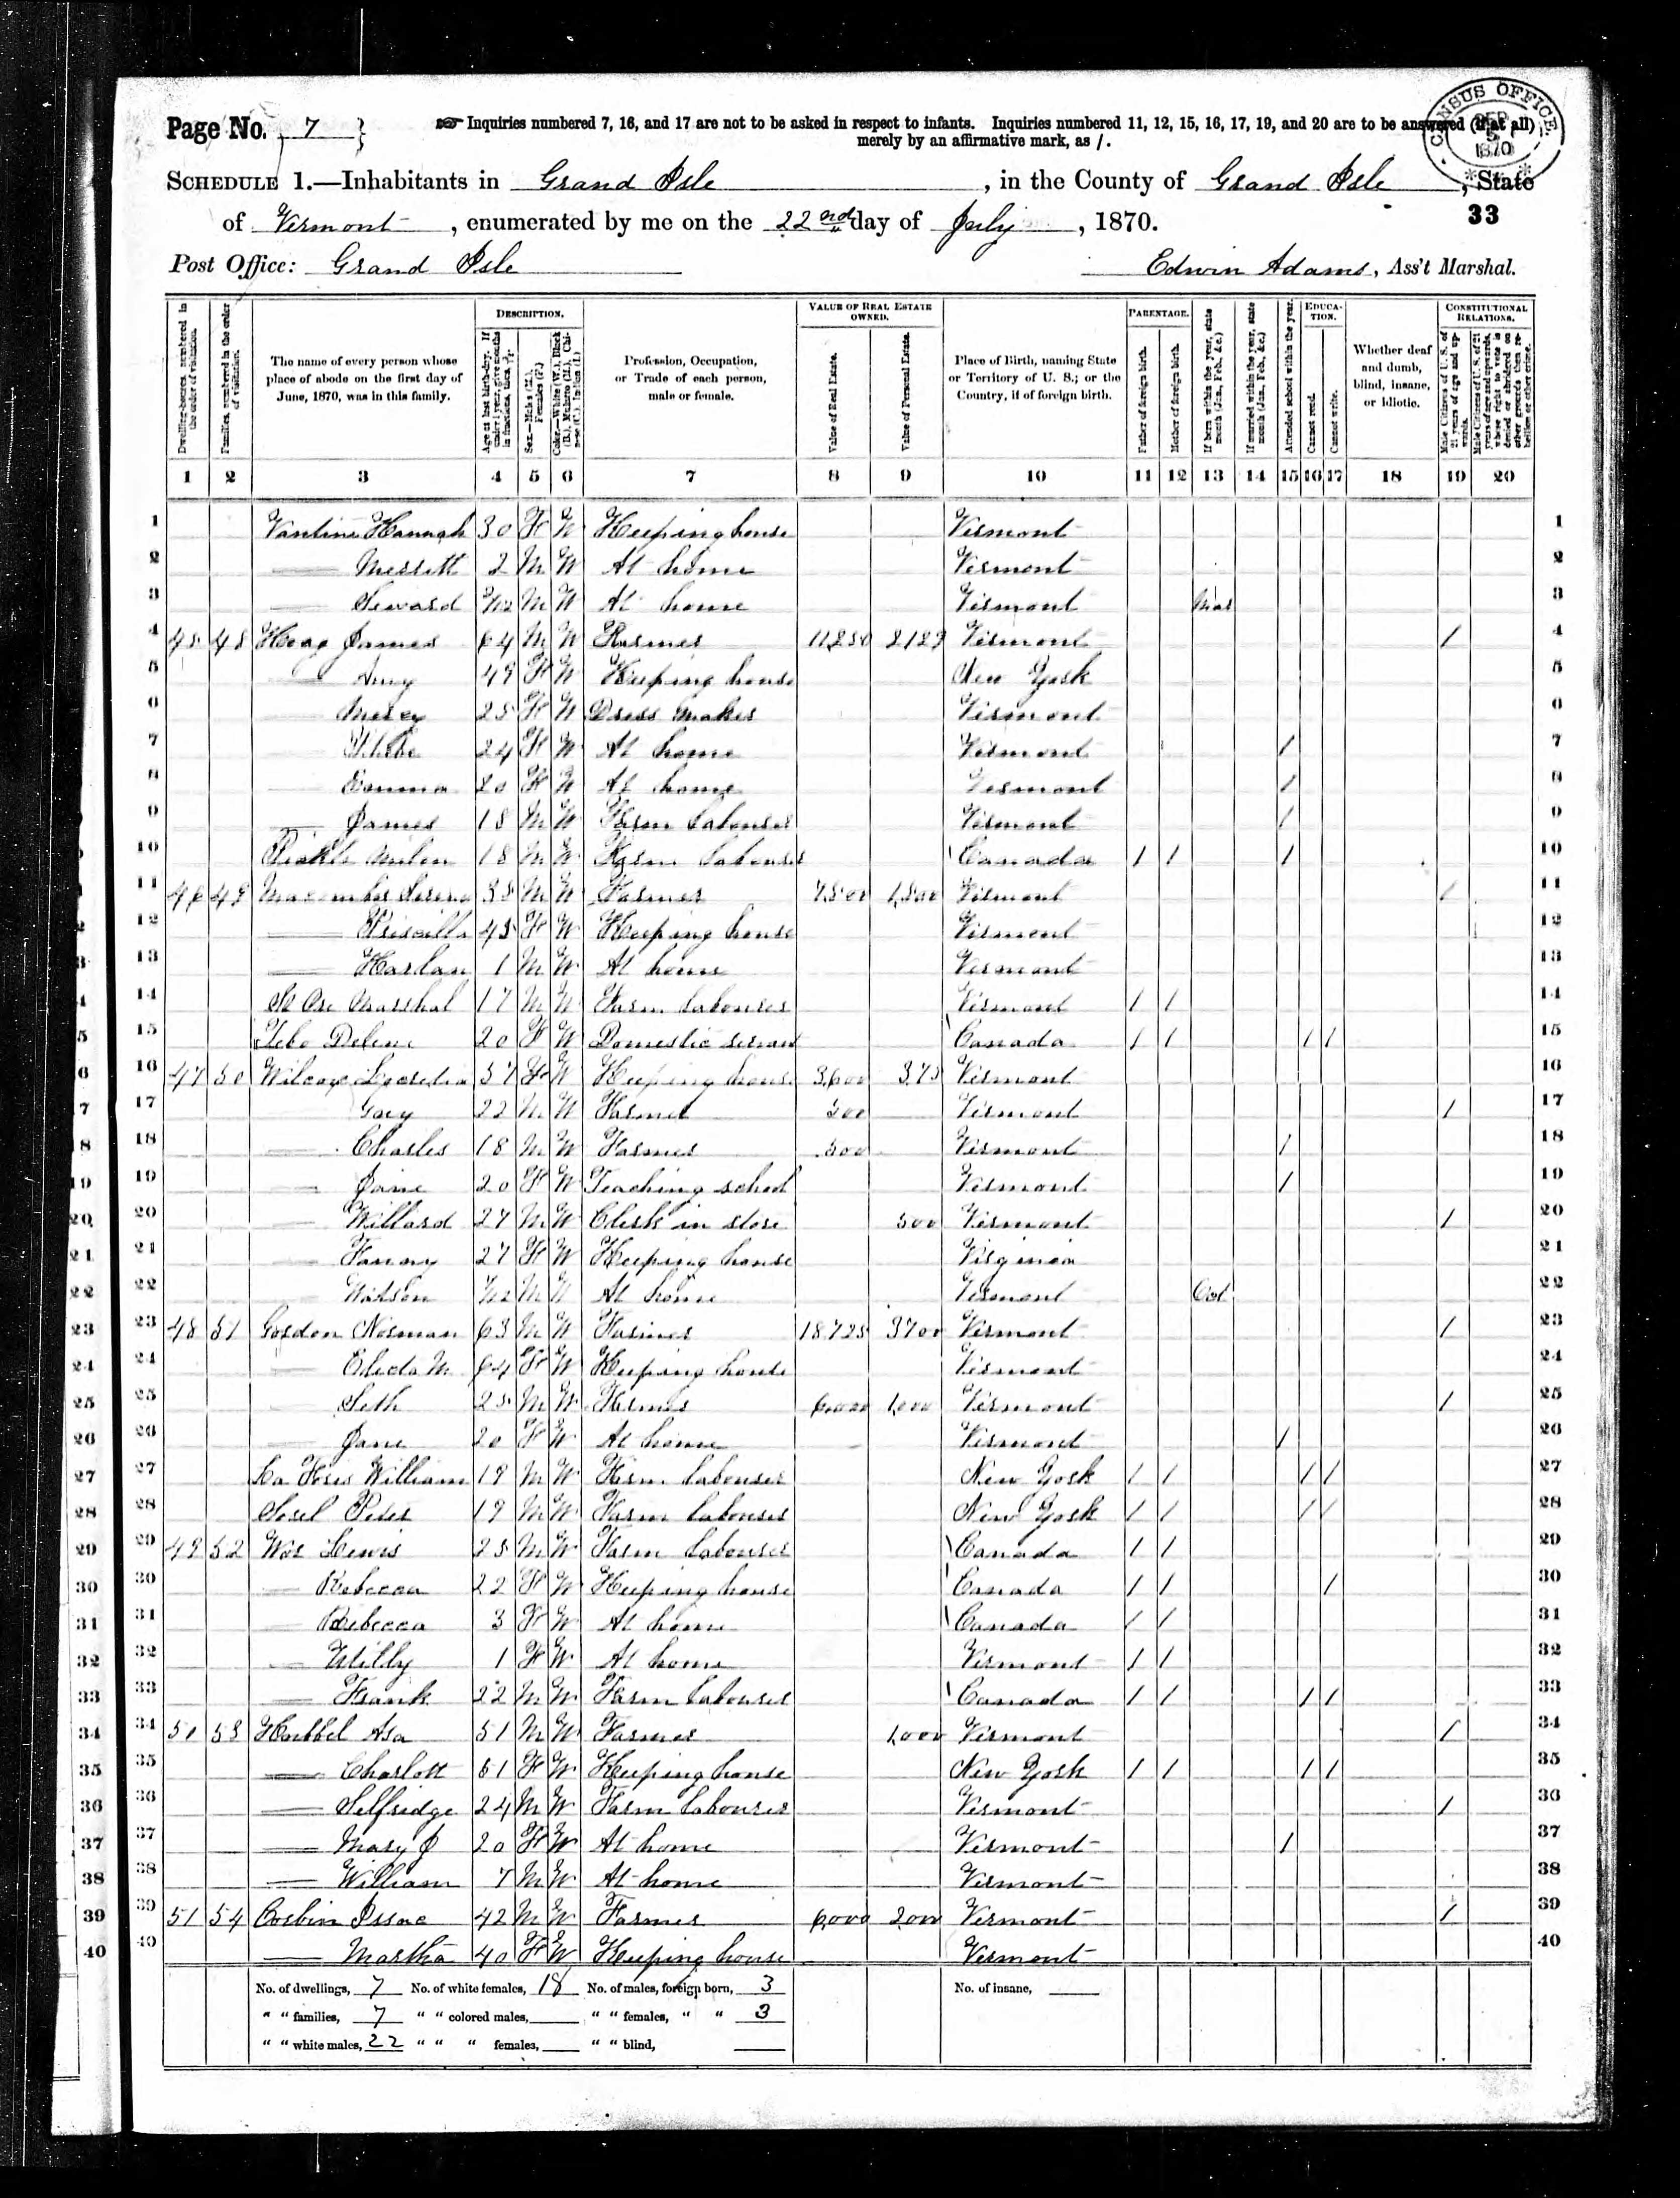 Page No. 7
Inquiries numbered 7, 16, and 17 are not to be asked in respect to infants. Inquiries numbered 11, 12, 15, 16, 17, 19, and 20 are to be answered (if at all)
merely by an affirmative mark, as /.
CENSUS OFFICE. SEP 5 1870
SCHEDULE 1.—Inhabitants in Grand Isle, in the County of Grand Isle, State
33
of Vermont, enumerated by me on the 22nd day of July, 1870.
Post Office: Grand Isle Edwin Adams, Ass't Marshal.
Dwelling-houses, numbered in the order of visitation.
Families, numbered in the order of visitation.
The name of every person whose place of abode on the first day of June, 1870, was in this family.
DESCRIPTION.
Age at last birth-day. If under 1 year, give months in fractions, thus, 3/12.
Sex.—Males (M.), Females (F.)
Color.—White (W.), Black (B.), Mulatto (M.), Chinese (C.), Indian (I.)
Profession, Occupation, or Trade of each person, male or female.
VALUE OF REAL ESTATE OWNED.
Value of Real Estate.
Value of Personal Estate.
Place of Birth, naming State or Territory of U. S.; or the Country, if of foreign birth.
PARENTAGE.
Father of foreign birth.
Mother of foreign birth.
If born within the year, state month (Jan. Feb. &c.)
If married within the year, state month (Jan. Feb. &c.)
Attended school within the year.
EDUCATION.
Cannot read.
Cannot write.
Whether deaf and dumb, blind, insane, or idiotic.
CONSTITUTIONAL RELATIONS.
Male Citizens of U. S. of 21 years of age and upwards.
Male Citizens of U. S. of 21 years of age and upwards, whose right to vote is denied or abridged on other grounds than rebellion or other crime.
1 2 3 4 5 6 7 8 9 10 11 12 13 14 15 16 17 18 19 20
1 Vantine Hannah 30 F W Keeping house Vermont 1
2 —— Merritt 2 M W At home Vermont 2
3 —— Seward M W At home Vermont Mar 3
4 45 48 Hoag James 64 M W Farmer 11,250 2123 Vermont / 4
5 —— Amy 49 F W Keeping house New York 5
6 —— Mercy 25 F W Dress Maker Vermont 6
7 —— Phebe 24 F W At home Vermont / 7
8 —— Emma 20 F W At home Vermont / 8
9 —— James 18 M W Farm Labourer Vermont / 9
10 18 M W Farm Labourer Canada / / / 10
11 46 49 Macomber 38 M W Farmer 7,500 1,500 Vermont / 11
12 —— Priscilla 45 F W Keeping house Vermont 12
13 —— Harlan 1 M W At home Vermont 13
14 Marshal 17 M W Farm Labourer Vermont / / 14
15 20 F W Domestic servant Canada / / / / 15
16 47 50 Wilcox 57 F W Keeping house 3,600 375 Vermont 16
17 —— 22 M W Farmer 500 Vermont / 17
18 —— Charles 18 M W Farmer 500 Vermont / 18
19 —— Jane 20 F W Teaching school Vermont / 19
20 —— Willard 27 M W Clerk in store 500 Vermont / 20
21 —— Fanny 27 F W Keeping house Virginia 21
22 —— Watson M W At home Vermont Oct 22
23 48 51 Gordon Norman 63 M W Farmer 18,725 3700 Vermont / 23
24 —— Electa M. 64 F W Keeping house Vermont 24
25 —— Seth 25 M W Farmer 6,000 1,000 Vermont / 25
26 —— Jane 20 F W At home Vermont / 26
27 William 19 M W Farm Labourer New York / / / / 27
28 Peter 19 M W Farm Labourer New York / / / / 28
29 49 52 Lewis 25 M W Farm Labourer Canada / / 29
30 —— Rebecca 22 F W Keeping house Canada / / / 30
31 —— Rebecca 3 F W At home Canada / / 31
32 —— Milly 1 F W At home Vermont / / 32
33 —— Frank 22 M W Farm Labourer Canada / / / / 33
34 50 53 Hubbel Asa 51 M W Farmer 1,000 Vermont / 34
35 —— Charlott 51 F W Keeping house New York / / / / 35
36 —— Selfridge 24 M W Farm Labourer Vermont / 36
37 —— Mary J 20 F W At home Vermont / 37
38 —— William 7 M W At home Vermont 38
39 51 54 Corbin Issac 42 M W Farmer 6,000 2,000 Vermont / 39
40 —— Martha 40 F W Keeping house Vermont 40
No. of dwellings, 7 No. of white females, 18 No. of males, foreign born, 3 No. of insane,
" " families, 7 " " colored males, " " females, " " 3
" " white males, 22 " " " females, " " blind,